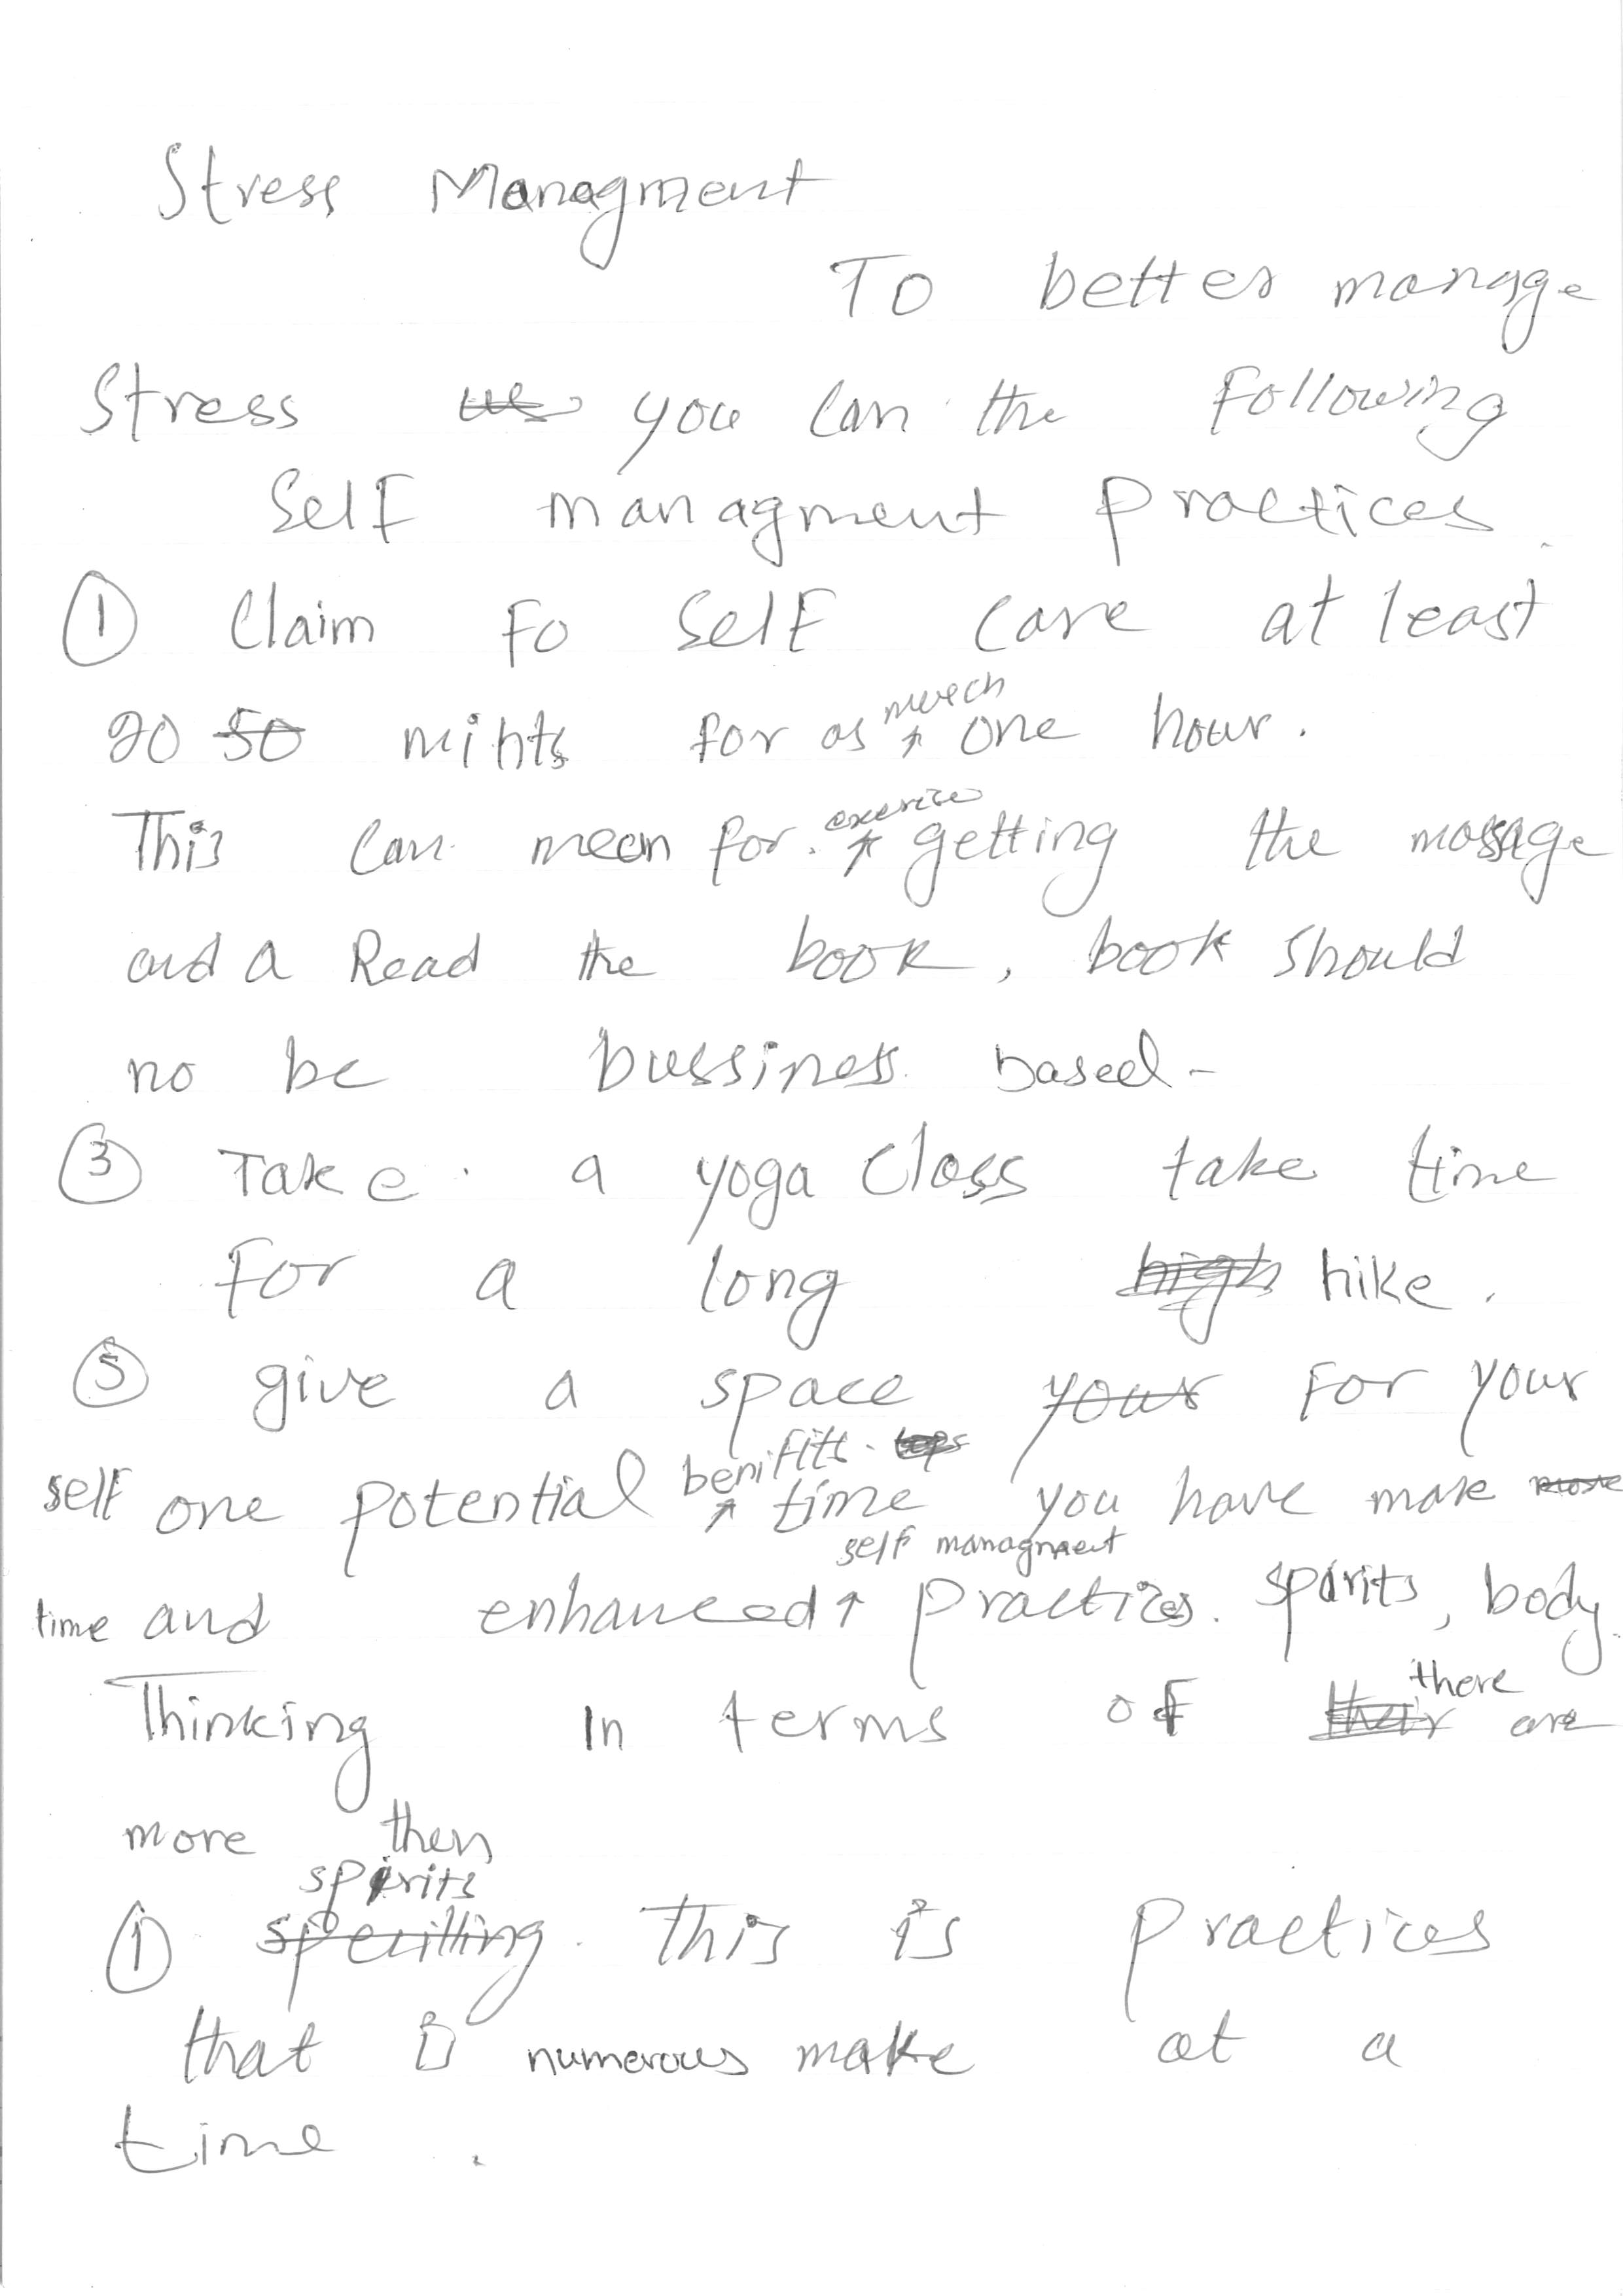 Stress Managment
To better manage
Stress you can the Following
Self managment practices
① Claim Fo Self Care at least
20 50 mihts for as much one hour.
This can mean for. exerice getting the massage
and a Read the book, book should
no be bussiness based-
③ Take a yoga Class take time
For a long high hike.
⑤ give a space your For your
self one potential benifitt time you have make more
time and enhanced self managment practices. spirits, body
Thinking In terms of their there are
more then
① spirits This is practices
that numerous make at a
time.